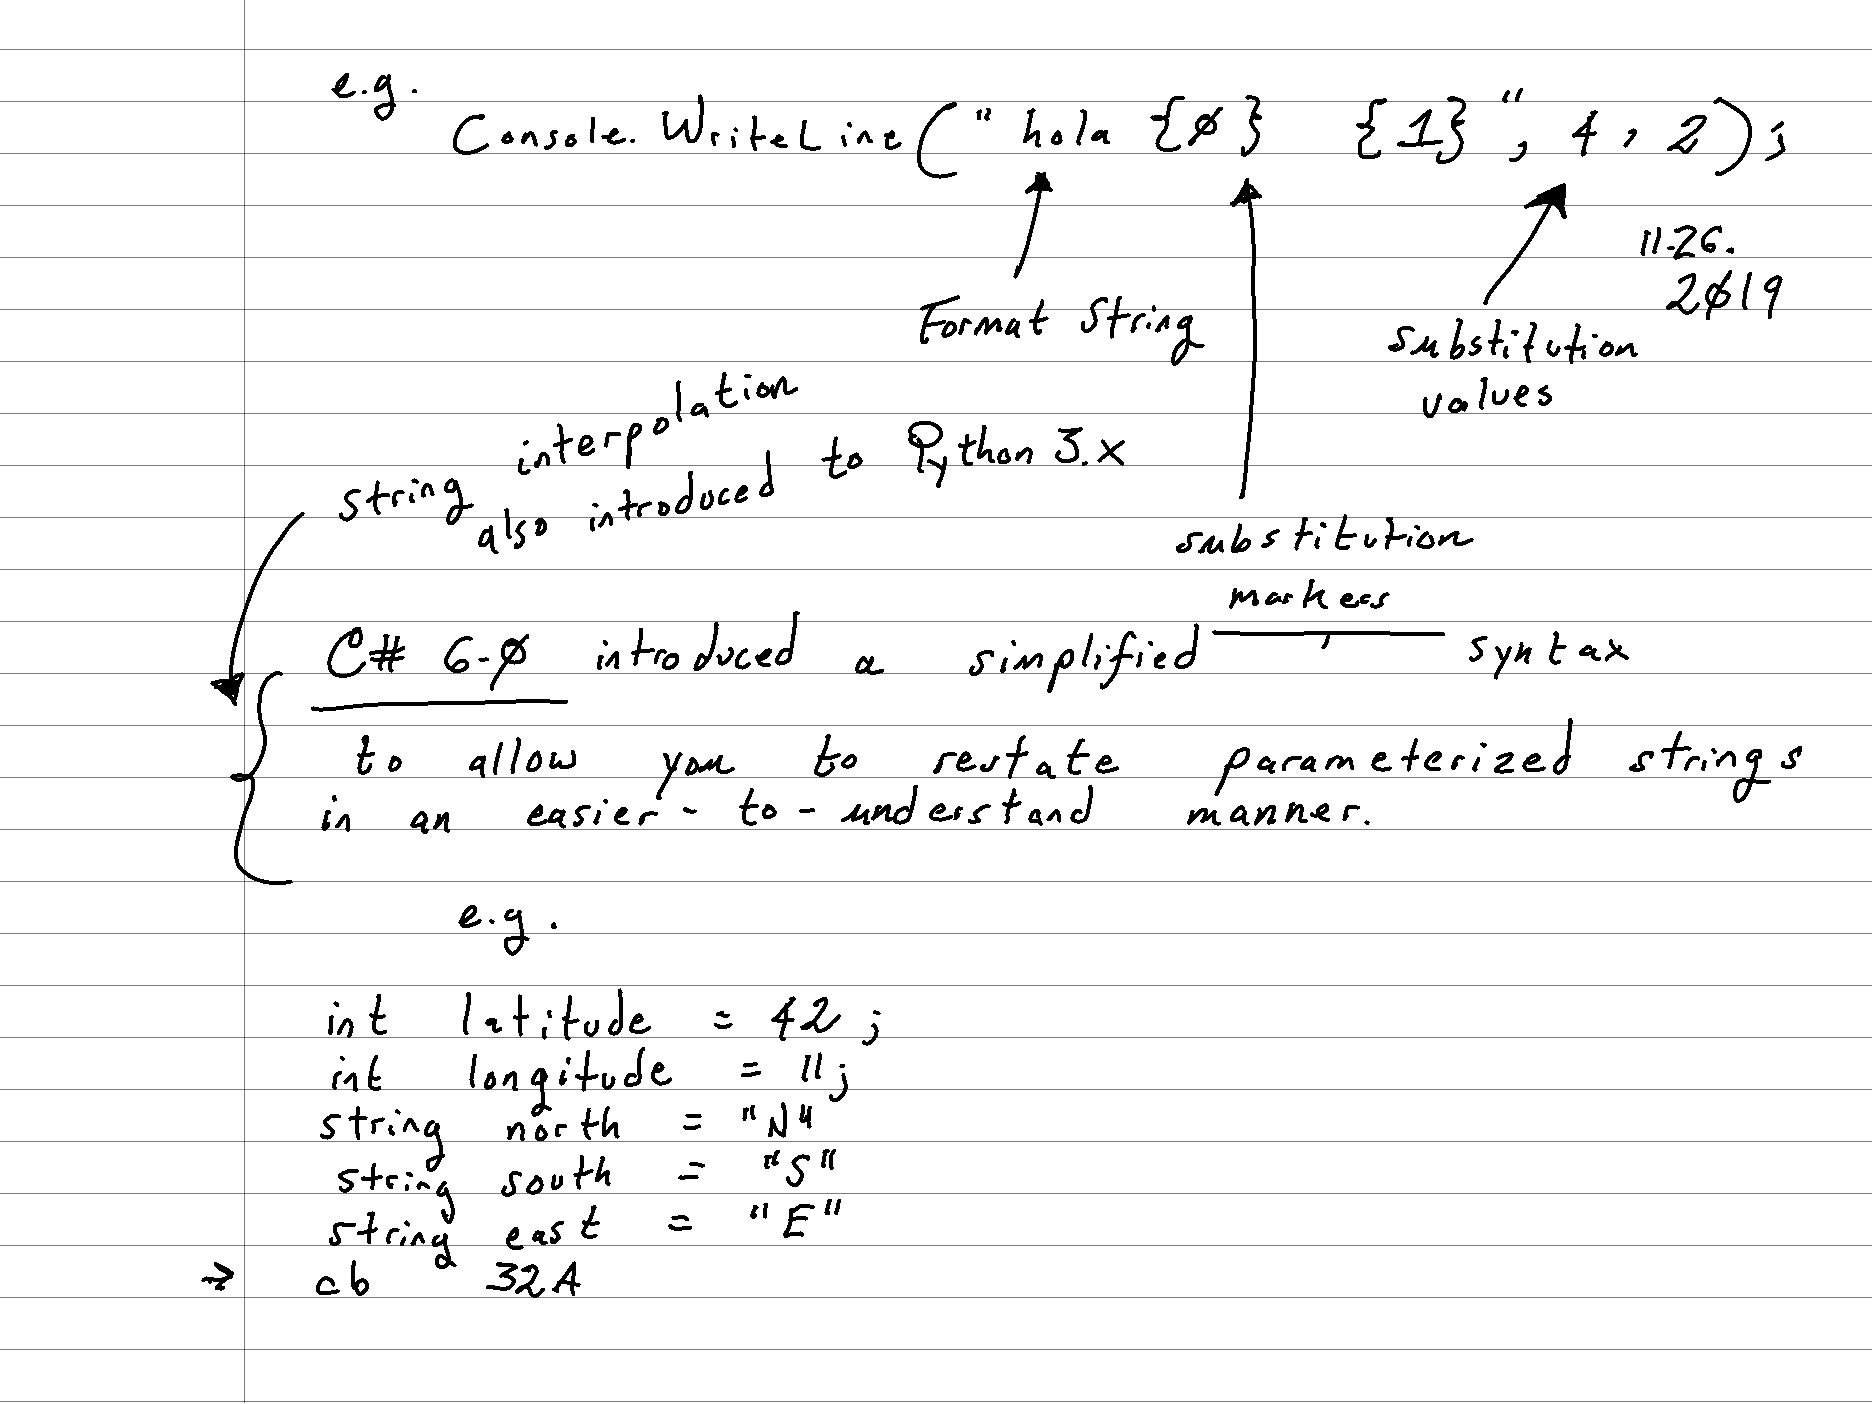 e.g.
Console.WriteLine("hola {0} {1}", 4, 2);
11.26.
2019
Format String
substitution
values
string interpolation
also introduced to Python 3.x
substitution
markers
C# 6.0 introduced a simplified syntax
to allow you to restate parameterized strings
in an easier-to-understand manner.
e.g.
int latitude = 42;
int longitude = 11;
string north = "N"
string south = "S"
string east = "E"
→ cb 32A